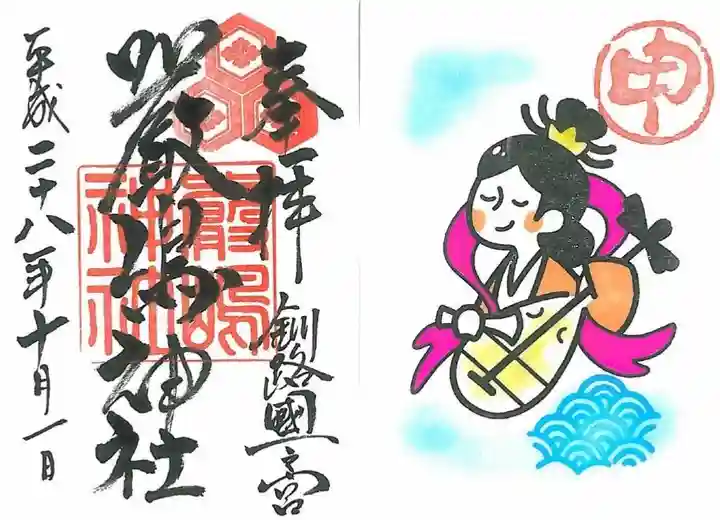 奉拝
釧路國一之宮
厳島神社
平成二十八年十月一日
嚴嶋
神社
申